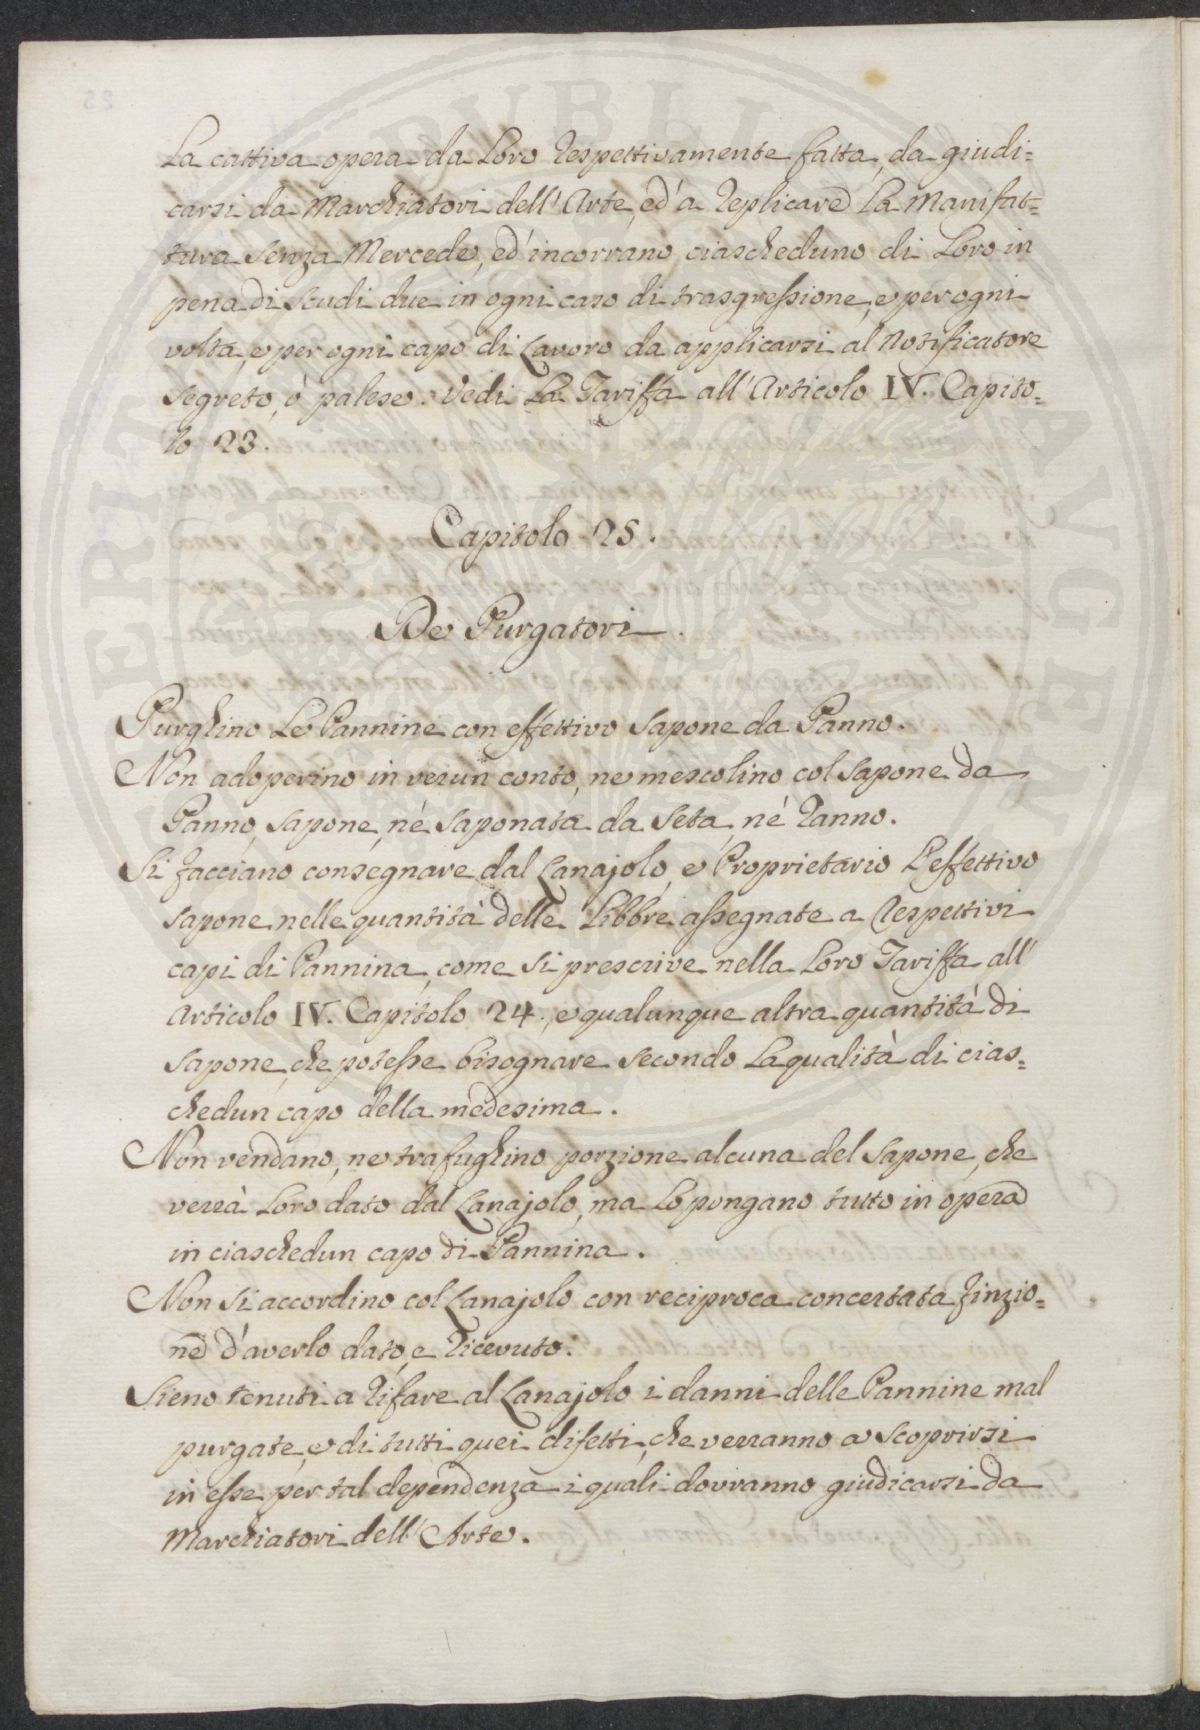 La cattiva opera da Loro respettivamente fatta, da giudi=
carsi da Marchiatori dell'Arte, ed'a replicare La Manifat=
tura senza Mercede, ed'incorrano ciascheduno di Loro in
pena di scudi due in ogni caso di trasgressione, e per ogni
volta, e per ogni capo di Lavoro da applicarsi al Notificatore
segreto, ò palese. Vedi La Tariffa all'Articolo IV. Capito=
lo 23.
Capitolo 25.
De Purgatori.
Purghino Le Pannine con effettivo Sapone da Panno.
Non adoperino in verun conto, ne mescolino col Sapone da
Panno, Sapone, nè Saponata da Seta, nè Ranno.
Si facciano consegnare dal Lanajolo, e Proprietario L'effettivo
Sapone nelle quantità delle Libbre assegnate a respettivi
capi di Pannina, come si prescrive nella Loro Tariffa all'
Articolo IV. Capitolo 24., e qualunque altra quantità di
Sapone, che potesse bisognare secondo La qualità di cias=
chedun capo della medesima.
Non vendano, ne trafughino porzione alcuna del Sapone, che
verrà Loro dato dal Lanajolo, ma Lo pongano tutto in opera
in ciaschedun capo di Pannina.
Non si accordino col Lanajolo con reciproca concertata finzio=
ne d'averlo dato, e ricevuto.
Sieno tenuti a rifare al Lanajolo i danni delle Pannine mal
purgate, e di tutti quei difetti, che verranno a scoprirsi
in esse per tal dependenza i quali dovranno giudicarsi da
Marchiatori dell'Arte.